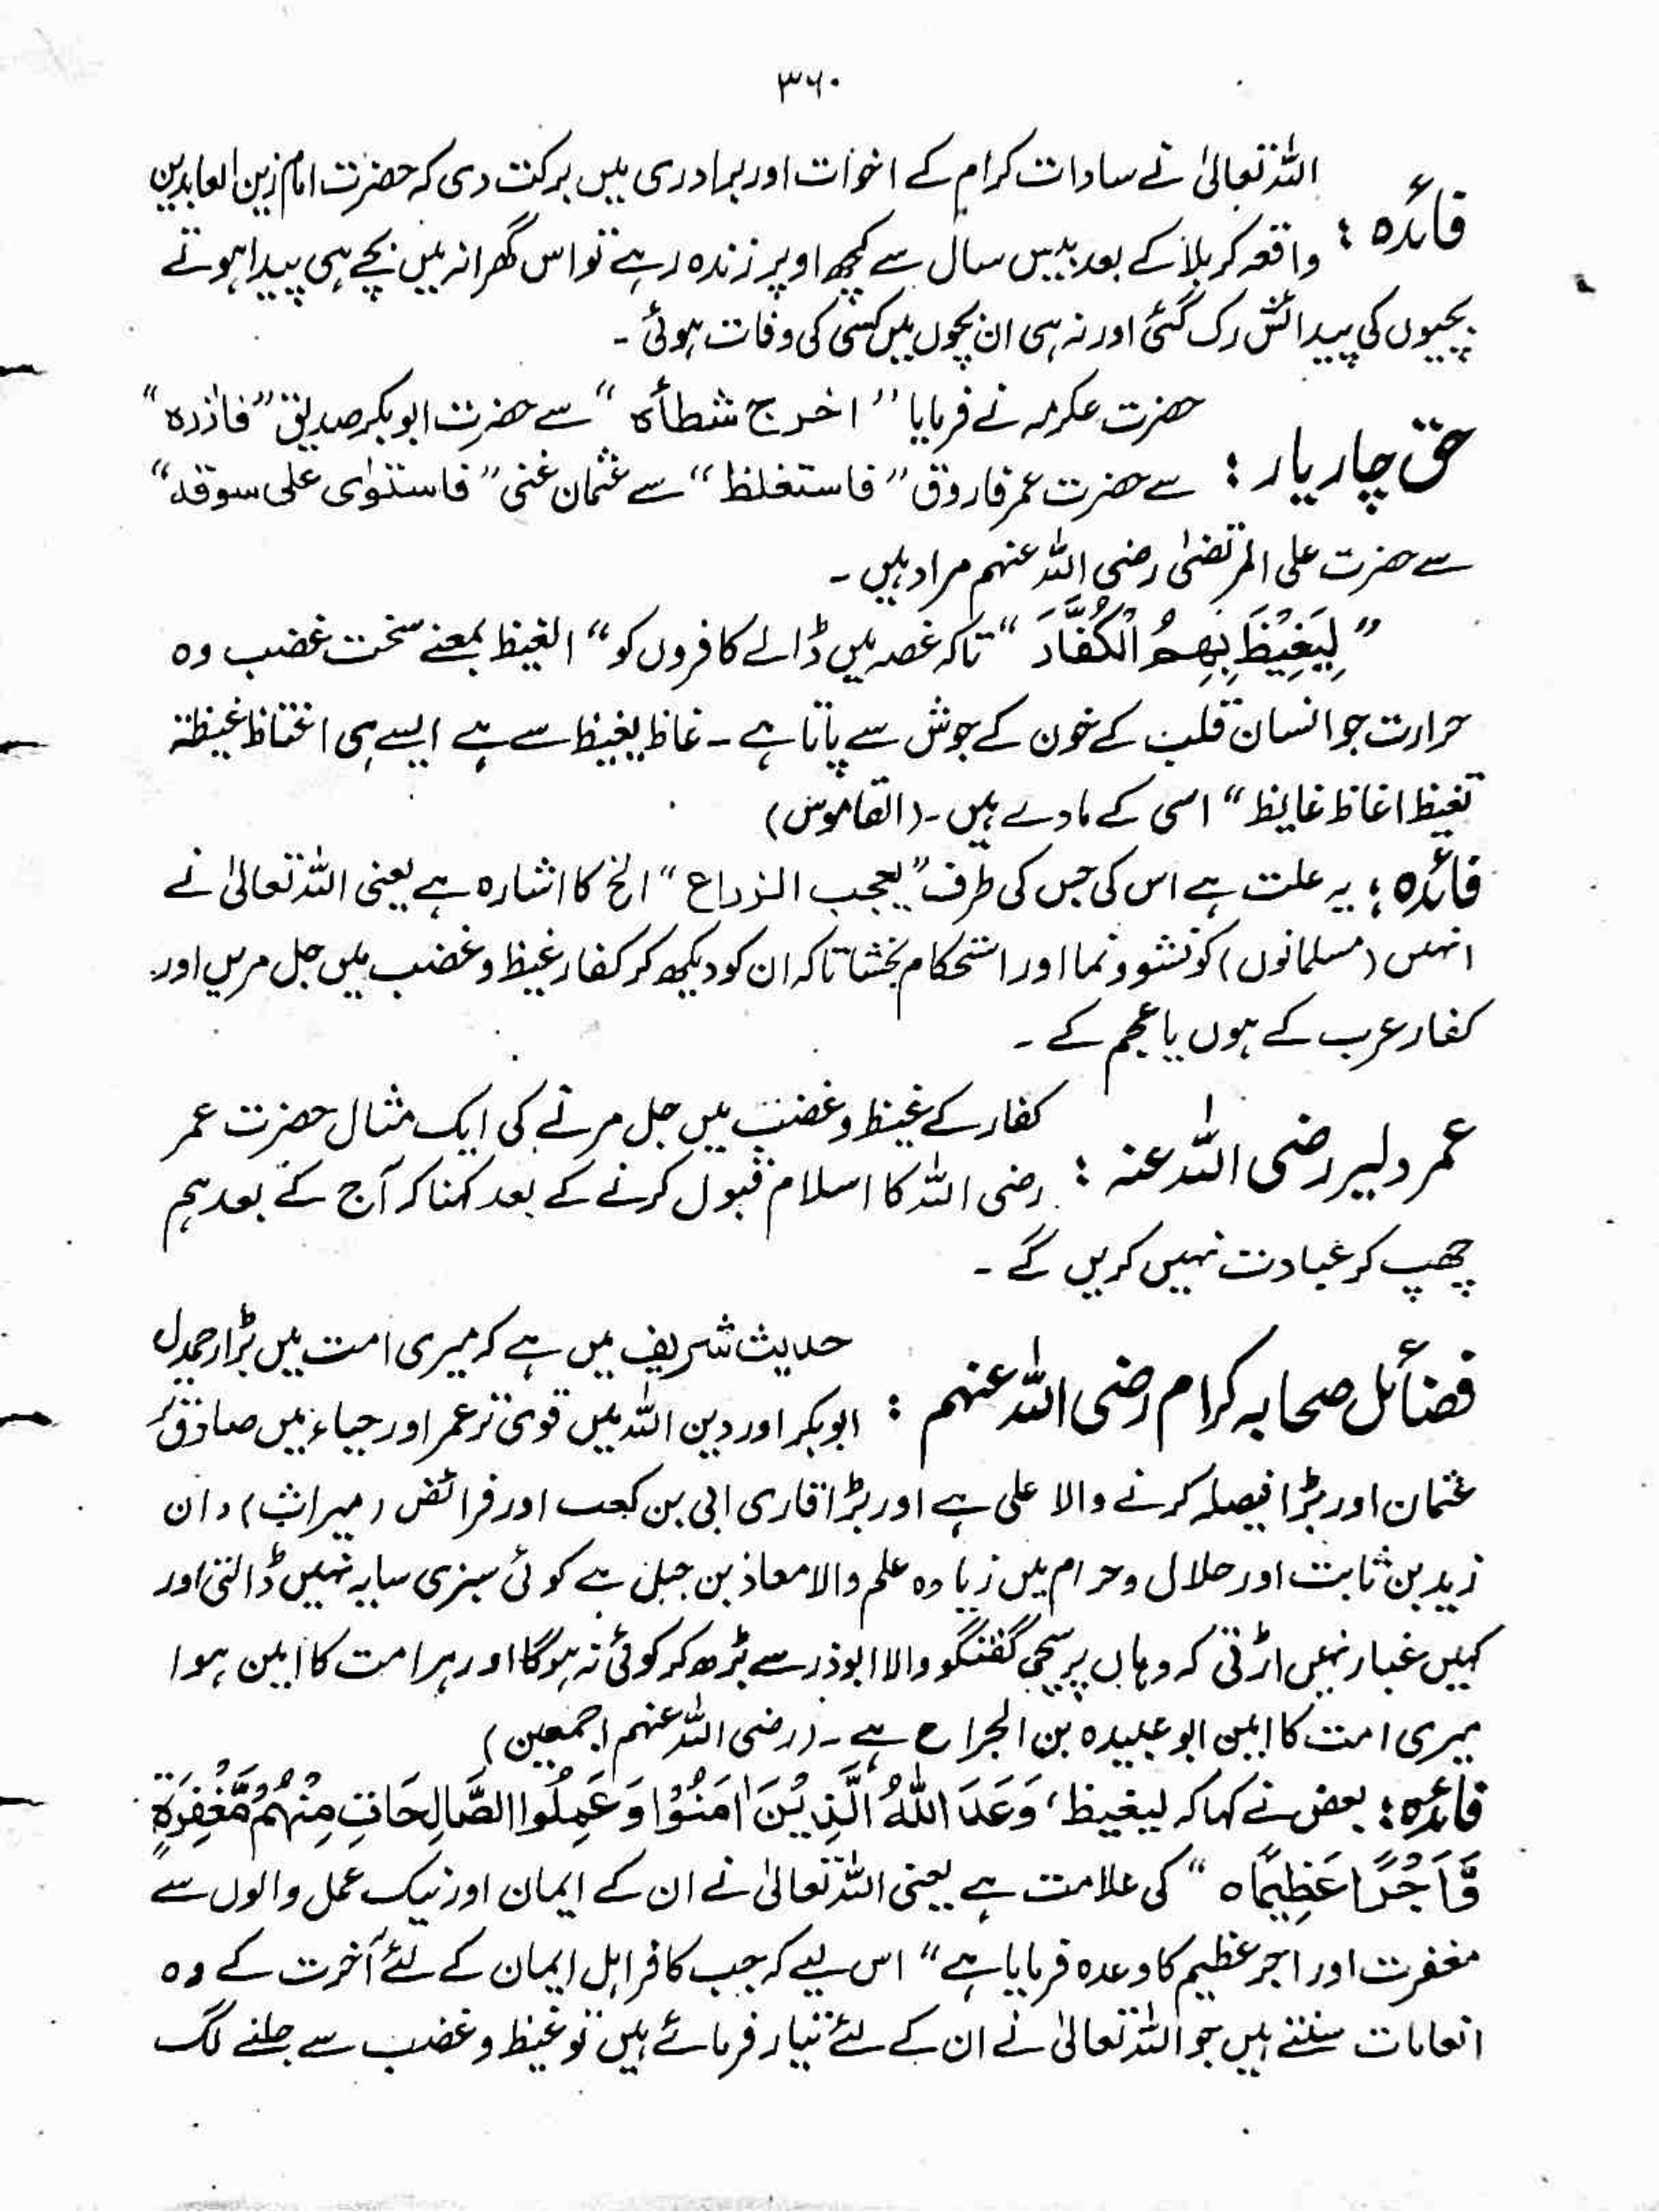 ۳۶۰
فائدہ : اللہ تعالیٰ نے سادات کرام کے اخوات اور برادری میں برکت دی کہ حضرت امام زین العابدین
واقعہ کربلا کے بعد بیس سال سے کچھ اوپر زندہ رہے تو اس گھرانہ میں بچے ہی پیدا ہوتے
بچیوں کی پیدائش رک گئی اور نہ ہی ان بچوں میں کسی کی وفات ہوئی ۔
حق چار یار : حضرت عکرمہ نے فرمایا ” اخرج شطأہ “ سے حضرت ابوبکر صدیق ” فازرہ “
سے حضرت عمر فاروق ” فاستغلظ “ سے عثمان غنی ” فاستوٰی علی سوقہ “
سے حضرت علی المرتضیٰ رضی اللہ عنہم مراد ہیں ۔
” لِیَغِیْظَ بِھِمُ الْکُفَّارَ “ تاکہ غصہ میں ڈالے کافروں کو “ الغیظ بمعنے سخت غضب وہ
حرارت جو انسان قلب کے خون کے جوش سے پاتا ہے ۔ غاظ یغیظ سے ہے ایسے ہی اغتاظ غیظۃ
تغیظ اغاظ غایظ “ اسی کے مادے ہیں ۔ (القاموس)
فائدہ : یہ علت ہے اس کی جس کی طرف ” یعجب الزراع “ الخ کا اشارہ ہے یعنی اللہ تعالیٰ نے
انہیں (مسلمانوں) کو نشوونما اور استحکام بخشا تاکہ ان کو دیکھ کر کفار غیظ و غضب میں جل مریں اور
کفار عرب کے ہوں یا عجم کے ۔
عمر دلیر رضی اللہ عنہ : کفار کے غیظ و غضب میں جل مرنے کی ایک مثال حضرت عمر
رضی اللہ کا اسلام قبول کرنے کے بعد کہنا کہ آج کے بعد ہم
چھپ کر عبادت نہیں کریں گے ۔
فضائل صحابہ کرام رضی اللہ عنہم : حدیث شریف میں ہے کہ میری امت میں بڑا رحمدل
ابوبکر اور دین اللہ میں قوی تر عمر اور حیاء میں صادق تر
عثمان اور بڑا فیصلہ کرنے والا علی ہے اور بڑا قاری ابی بن کعب اور فرائض (میراث) دان
زید بن ثابت اور حلال و حرام میں زیادہ علم والا معاذ بن جبل ہے کوئی سبزی سایہ نہیں ڈالتی اور
کہیں غبار نہیں اڑتی کہ وہاں پر سچی گفتگو والا ابوذر سے بڑھ کر کوئی نہ ہوگا اور ہر امت کا امین ہوا
میری امت کا امین ابو عبیدہ بن الجراح ہے ۔ (رضی اللہ عنہم اجمعین)
فائدہ : بعض نے کہا کہ لیغیظ ، وَعَدَ اللّٰهُ الَّذِیْنَ اٰمَنُوْا وَعَمِلُوا الصَّالِحَاتِ مِنْھُمْ مَّغْفِرَةً
وَّاَجْرًا عَظِیْمًاہ “ کی علامت ہے یعنی اللہ تعالیٰ نے ان کے ایمان اور نیک عمل والوں سے
مغفرت اور اجر عظیم کا وعدہ فرمایا ہے “ اس لیے کہ جب کافر اہل ایمان کے لئے آخرت کے وہ
انعامات سنتے ہیں جو اللہ تعالیٰ نے ان کے لئے تیار فرمائے ہیں تو غیظ و غضب سے جلنے لگ